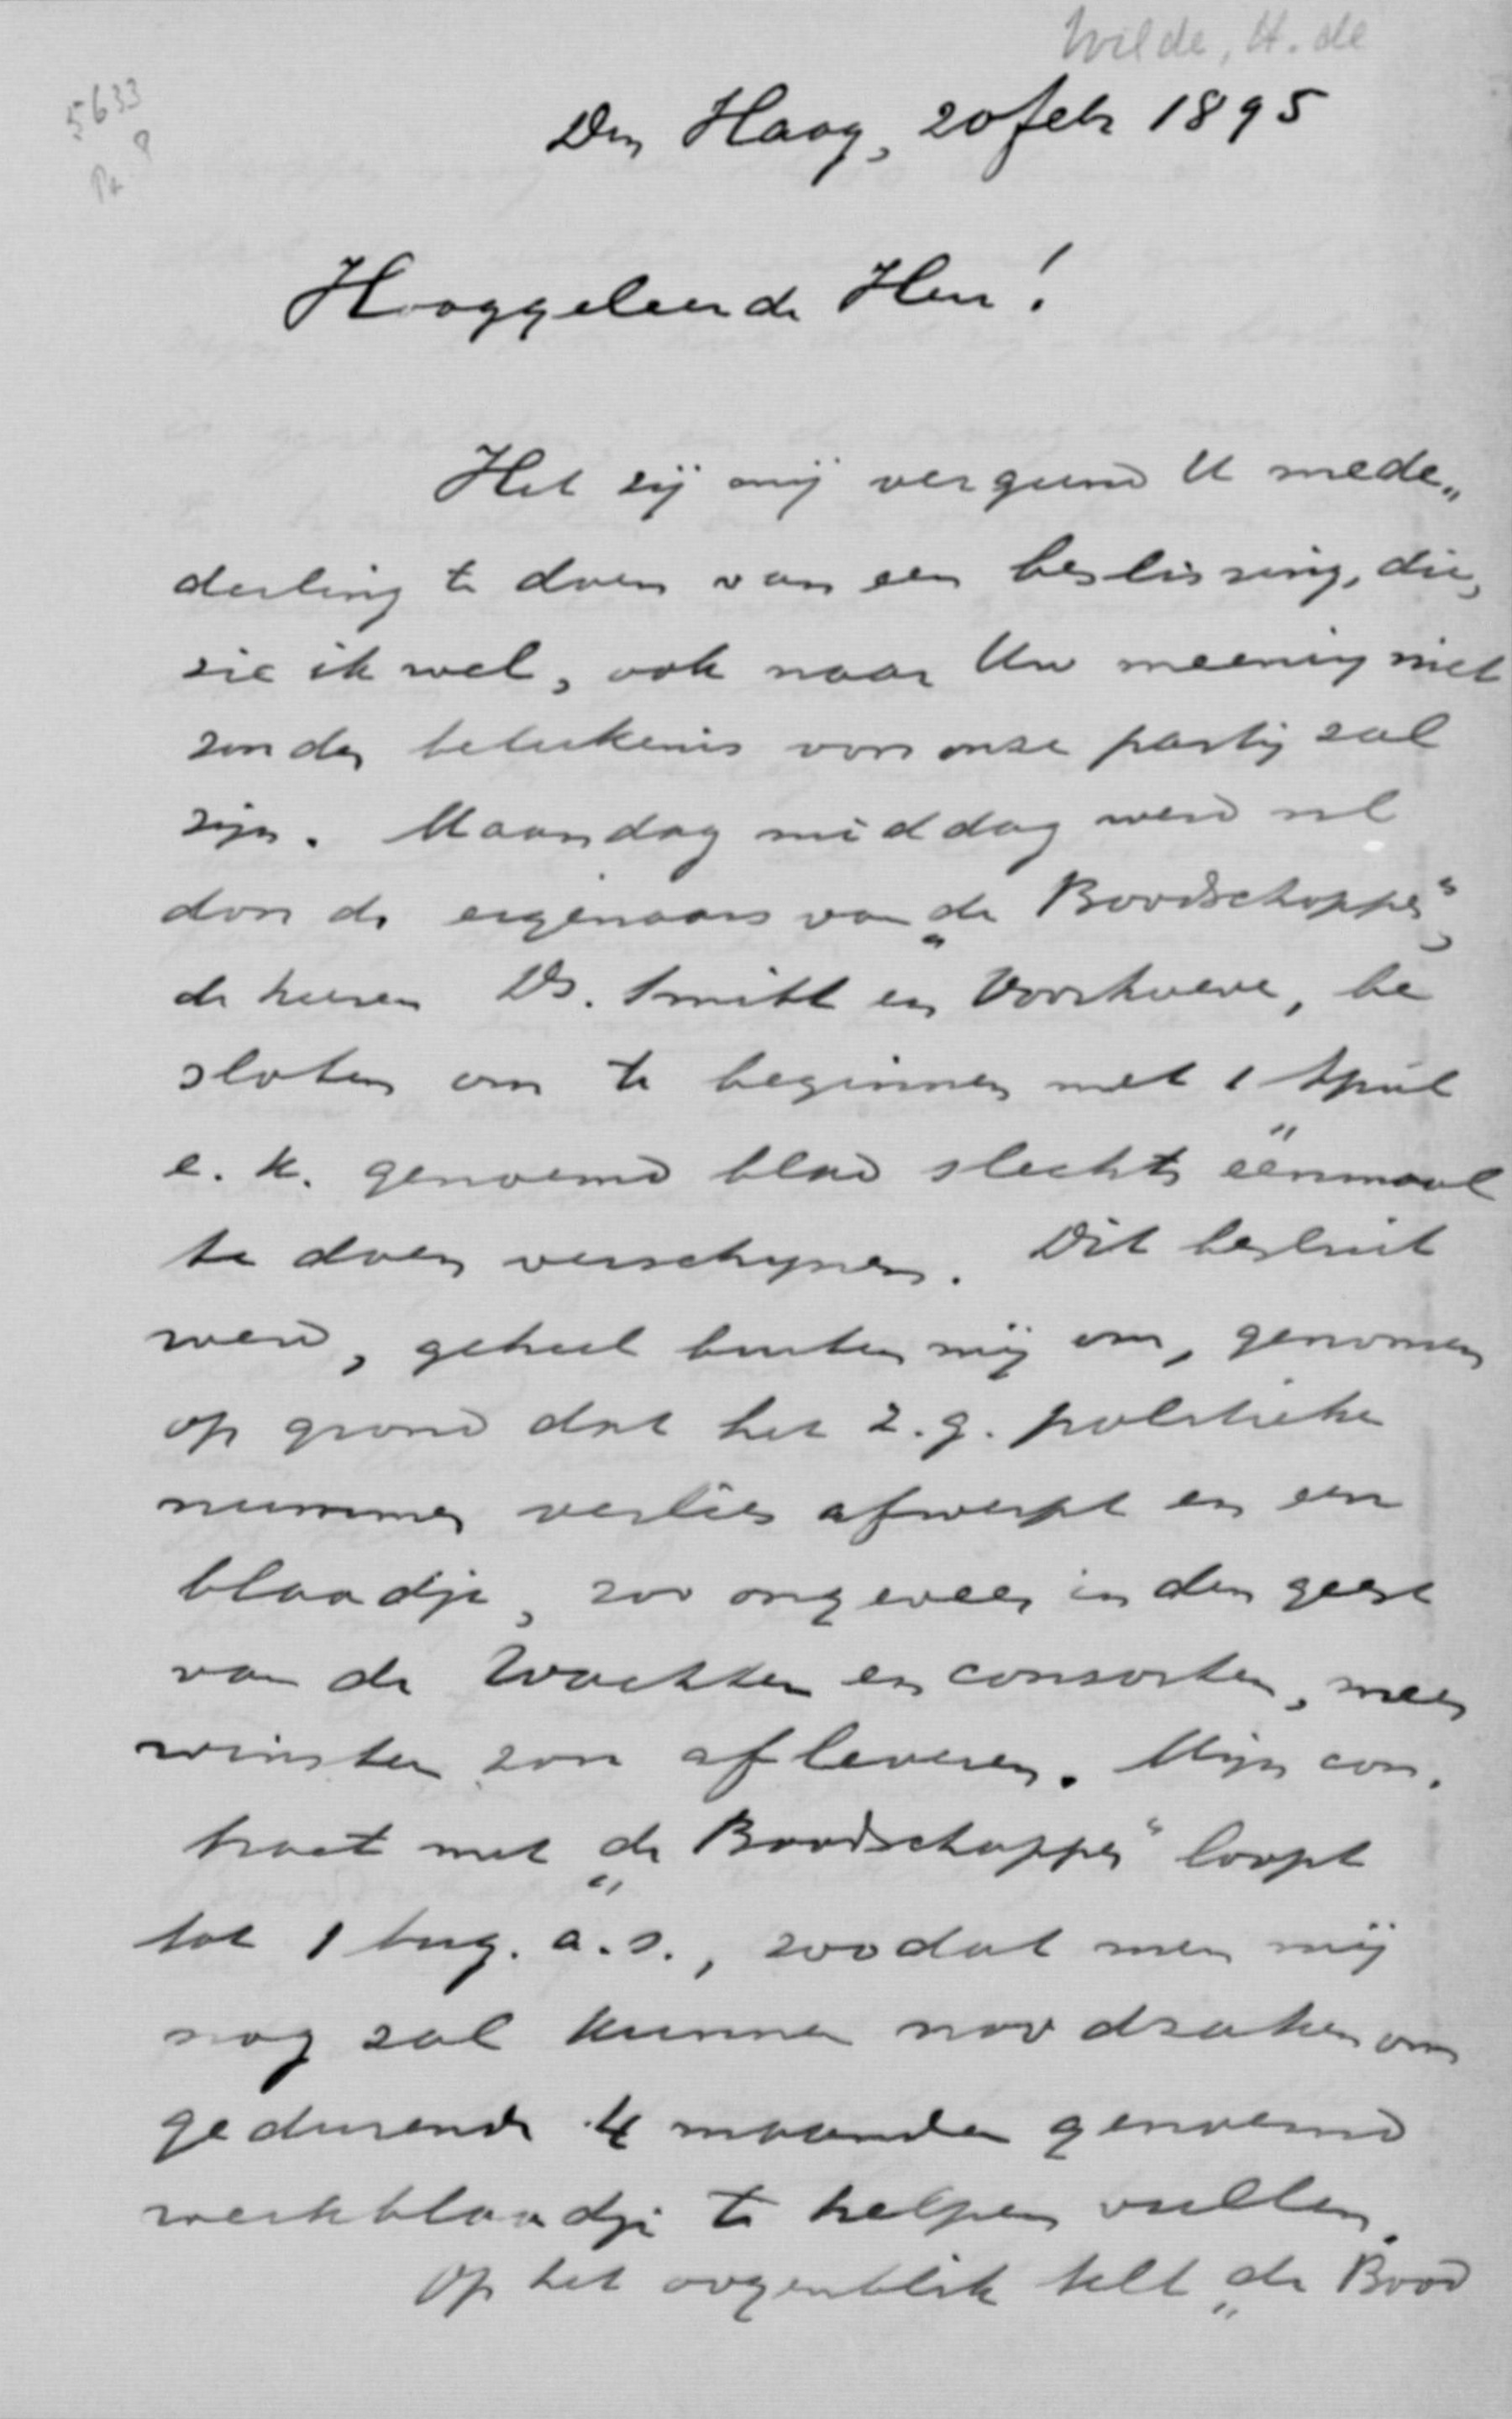 Wilde, H. de
5633
Den Haag, 20 feb 1895
Hooggeleerde Heer!
Het zij mij vergund U mede„
deeling te doen van een beslissing, die,
zie ik wel, ook naar Uw meening niet
zonder beteekenis voor onze partij zal
zijn. Maandag middag werd nl
door de eigenaars van „de Boodschapper“,
de heeren Ds. Smitt en Voorhoeve, be
sloten om te beginnen met 1 April
e. k. genoemd blad slechts éénmaal
te doen verschijnen. Dit besluit
werd, geheel buiten mij om, genomen
op grond dat het z.g. politieke
nummer verlies afwerpt en een
blaadje, zoo ongeveer in den geest
van de Wachter en consorten, meer
winsten zou afleveren. Mijn con.
tract met „de Boodschapper“ loopt
tot 1 Aug. a.s., zoodat men mij
nog zal kunnen noodzaken om
gedurende 4 maanden genoemd
weekblaadje te helpen vullen.
Op het oogenblik telt „de Bood